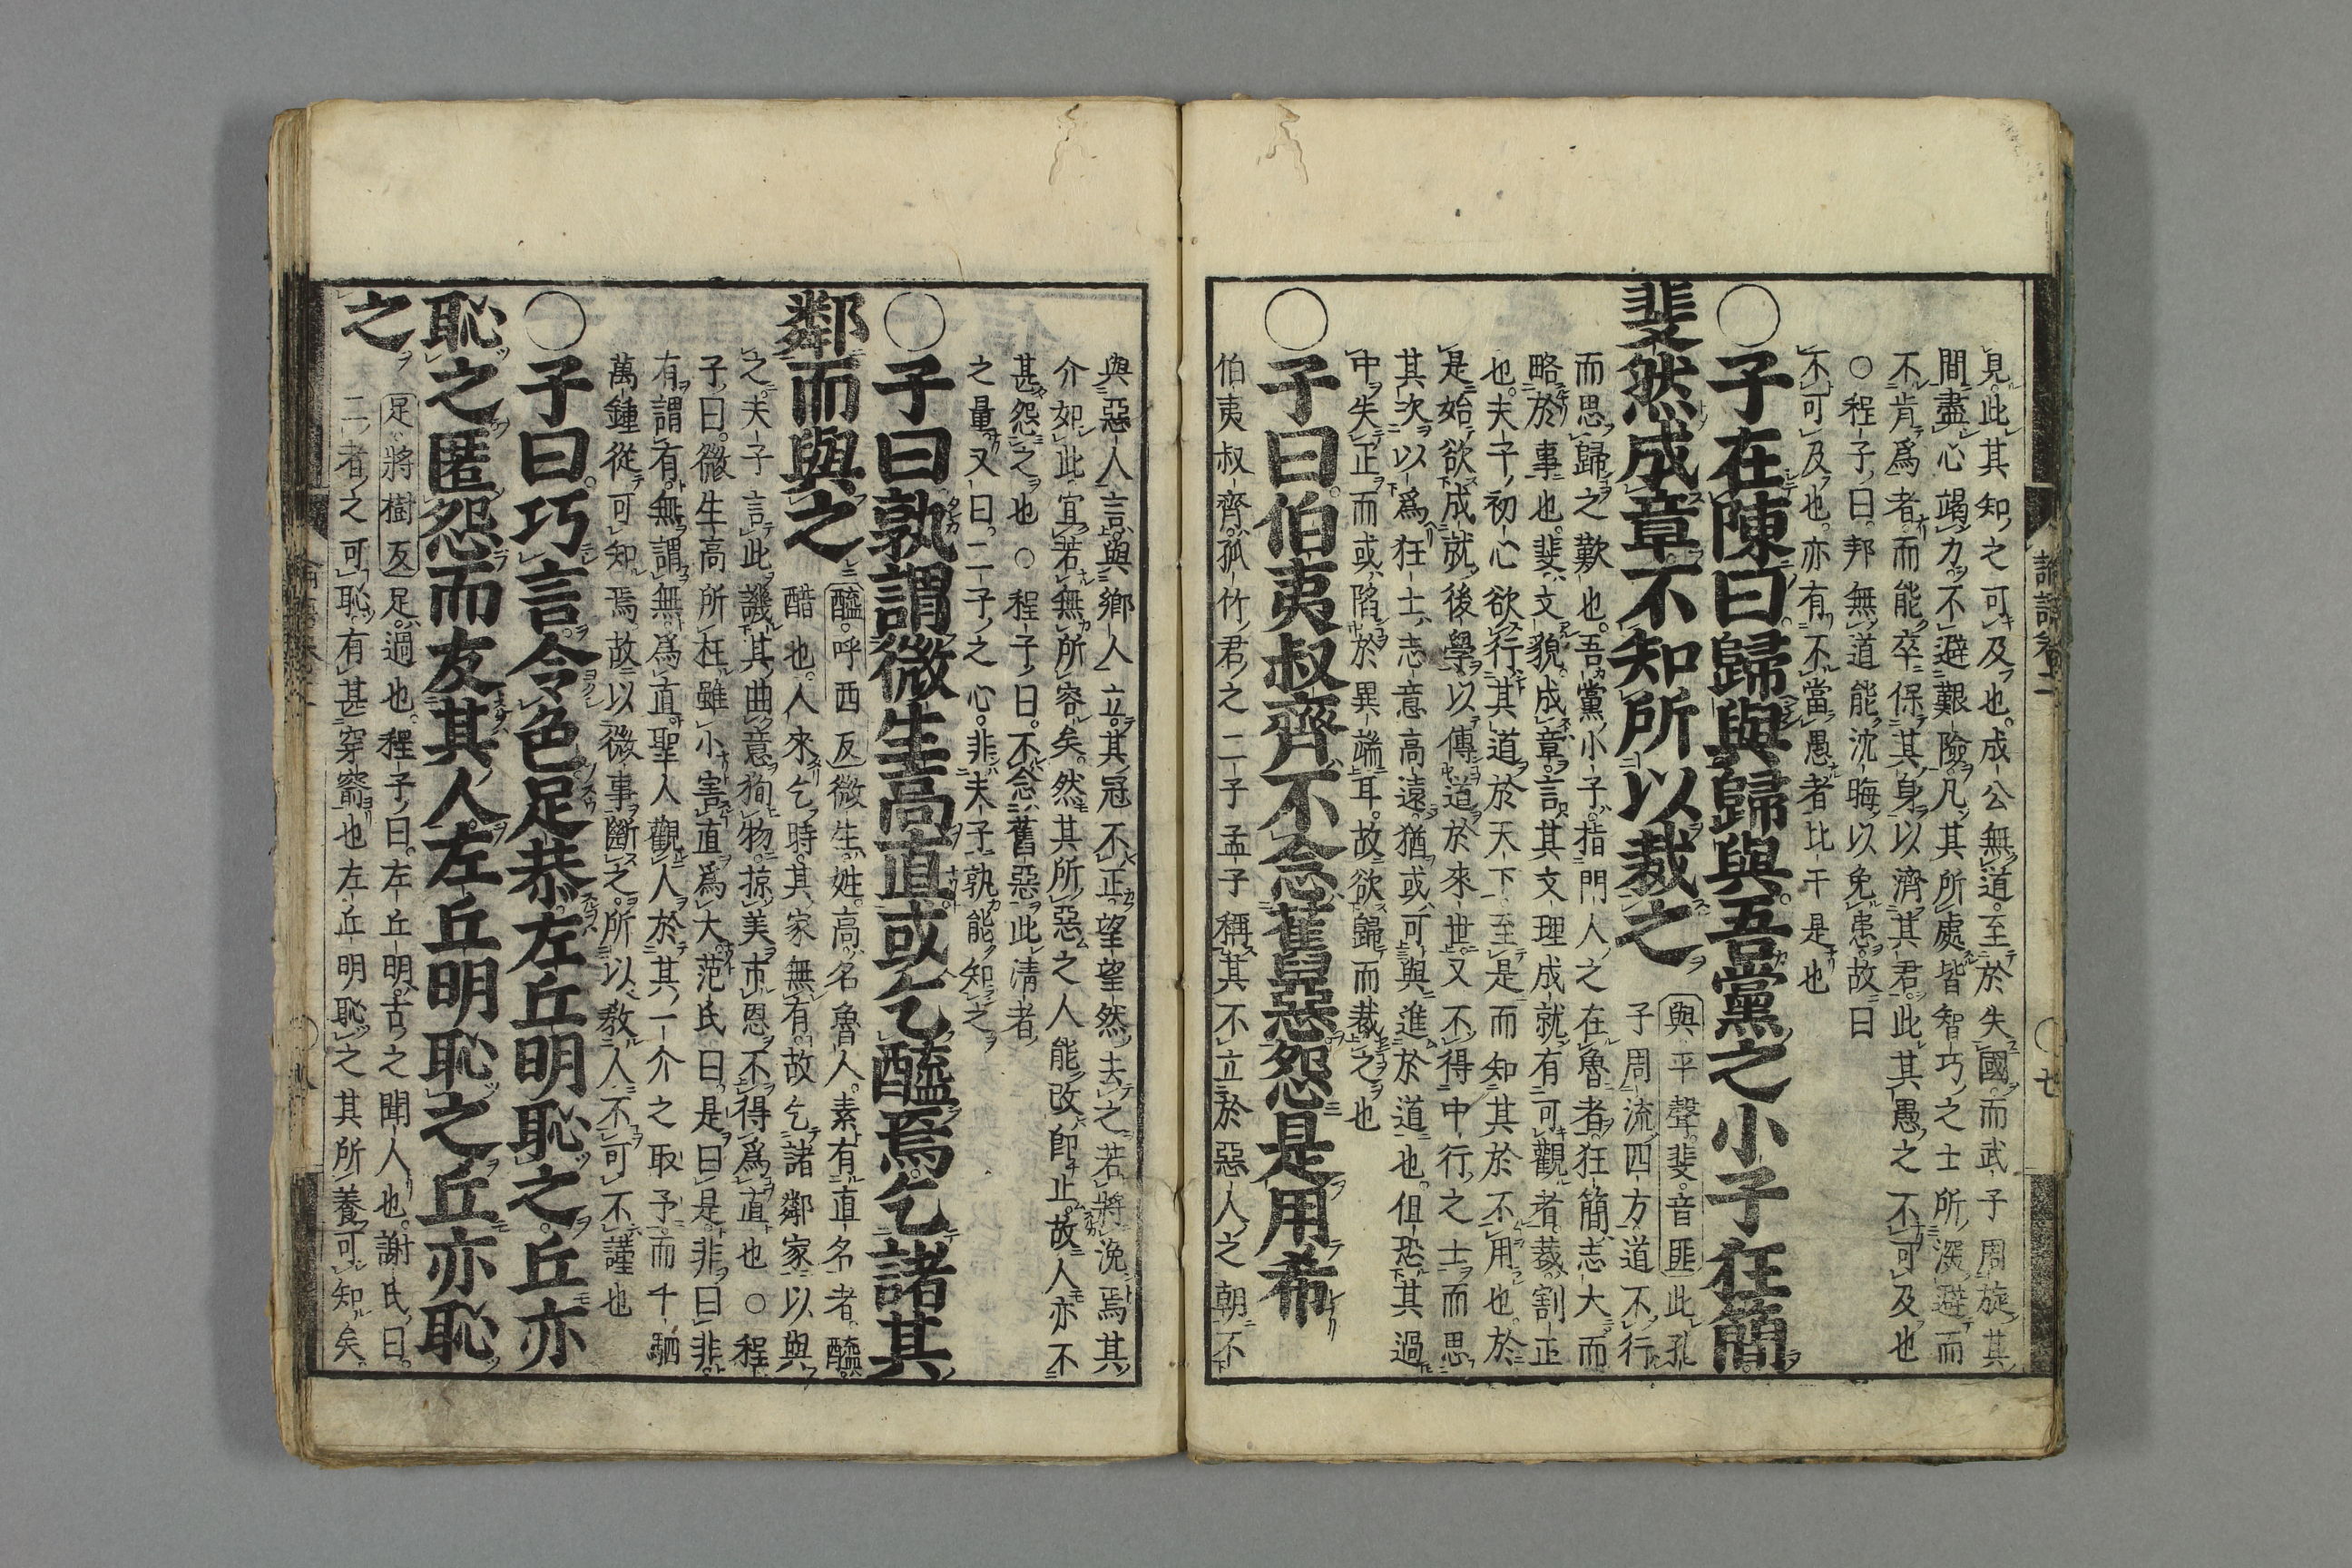 見此其知之可及也成公無道至於失國而武子周旋其
間盡心竭力不避艱險凡其所處皆智巧之士所深避而
不肯爲者而能卒保其身以濟其君此其愚之不可及也
○程子曰邦無道能沈晦以免患故曰
不可及也亦有不當愚者比干是也
○子在陳曰歸與歸與吾黨之小子狂簡
斐然成章不知所以裁之
與平聲斐音匪此孔
子周流四方道不行
而思歸之歎也吾黨小子指門人之在魯者狂簡志大而
略於事也斐文貌成章言其文理成就有可觀者裁割正
也夫子初心欲行其道於天下至是而知其於不用也於
是始欲成就後學以傳道於來世又不得中行之士而思
其次以爲狂士志意高遠猶或可與進於道也但恐其過
中失正而或陷於異端耳故欲歸而裁之也
○子曰伯夷叔齊不念舊惡怨是用希
伯夷叔齊孤竹君之二子孟子稱其不立於惡人之朝不
論語卷二
○七
與惡人言與鄉人立其冠不正望望然去之若將浼焉其
介如此宜若無所容矣然其所惡之人能改卽止故人亦不
甚怨之也○程子曰不念舊惡此淸者
之量又曰二子之心非夫子孰能知之
○子曰孰謂微生高直或乞醯焉乞諸其
鄰而與之
醯呼西反微生姓高名魯人素有直名者醯
醋也人來乞時其家無有故乞諸鄰家以與
之夫子言此譏其曲意狥物掠美市恩不得爲直也○程
子曰微生高所枉雖小害直爲大范氏曰是曰是非曰非
有謂有無謂無爲直聖人觀人於其一介之取予而千駟
萬鍾從可知焉故以微事斷之所以敎人不可不謹也
○子曰巧言令色足恭左丘明恥之丘亦
恥之匿怨而友其人左丘明恥之丘亦恥
之
足將樹反足過也程子曰左丘明古之聞人也謝氏曰
二者之可恥有甚穿窬也左丘明恥之其所養可知矣